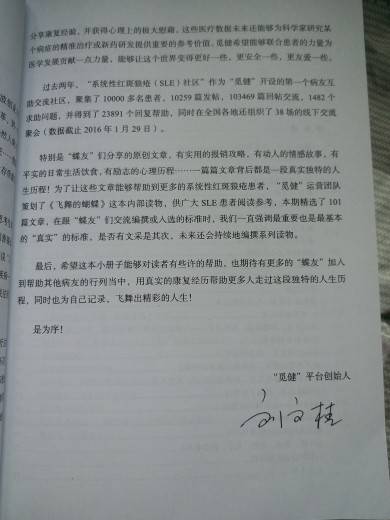 分享康复经验，并获得心理上的极大慰藉，这些医疗数据未来还能够为科学家研究某
个病症的精准治疗或新药研发提供重要的参考价值。觅健希望能够联合患者的力量为
医学发展贡献一点力量，能够让这个世界变得更好一些，更安全一些，更友爱一些。
过去两年，“系统性红斑狼疮（SLE）社区”作为“觅健”开设的第一个病友互
助交流社区，聚集了 10000 多名患者，10259 篇发帖，103469 篇回帖交流，1482 个
求助问题，并得到了 23891 个回复帮助，同时在全国各地还组织了 38 场的线下交流
聚会（数据截止 2016 年 1 月 29 日）。
特别是“蝶友”们分享的原创文章，有实用的报销攻略，有动人的情感故事，有
平实的日常生活饮食，有励志的心理历程………一篇篇文章背后都是一段真实独特的人
生历程！为了让这些文章能够帮助到更多的系统性红斑狼疮患者，“觅健”运营团队
策划了《飞舞的蝴蝶》这本内部读物，供广大 SLE 患者阅读参考，本期精选了 101
篇文章，在跟“蝶友”们交流编撰或入选的标准时，我们一直强调最重要也是最基本
的“真实”的标准，是否有文采是其次，未来还会持续地编撰系列读物。
最后，希望这本小册子能够对读者有些许的帮助，也期待有更多的“蝶友”加入
到帮助其他病友的行列当中，用真实的康复经历帮助更多人走过这段独特的人生历
程，同时也为自己记录，飞舞出精彩的人生！
是为序！
“觅健”平台创始人
刘文桂